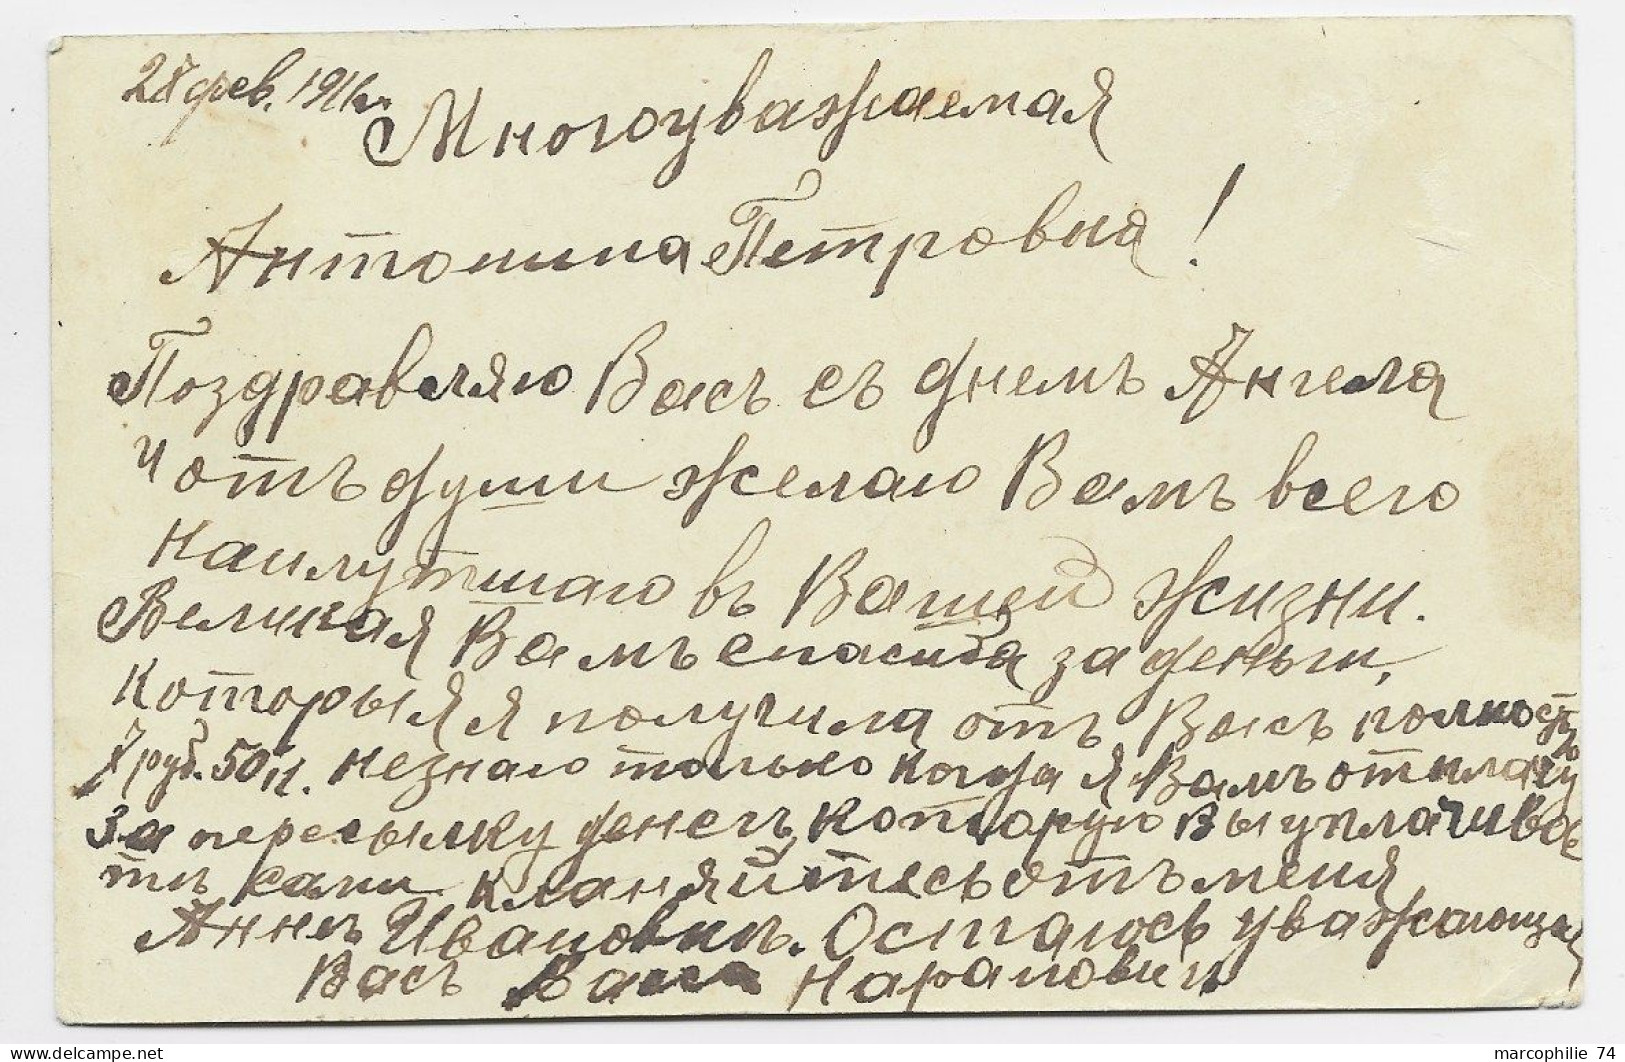 фев. 1916 г.
Многоуважаемая
Антонина Петровна!
Поздравляю Васъ съ днемъ Ангела
И отъ души желаю Вамъ всего
наилутшаго въ Вашей жизни.
Великая Вамъ спасиба за деньги,
которыя я получила отъ Васъ полность
7 руб. 50 к. незнаю только когда я Вамъ отплачу
За пересылку денегъ, которую Вы уплачивае
тъ сами кланяйтесь отъ меня
Аннѣ Ивановнѣ. Остаюсь уважающая
Васъ
marcophilie 74